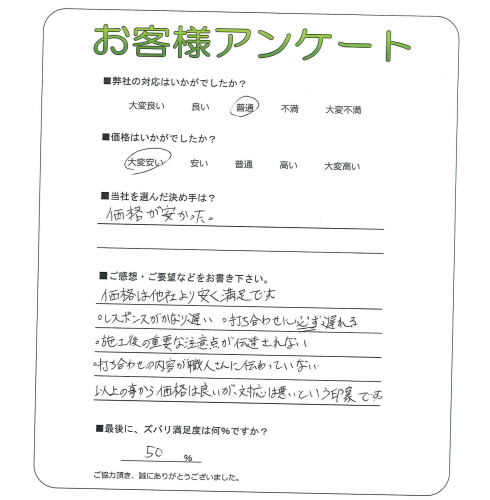 お客様アンケート
■弊社の対応はいかがでしたか?
大変良い 良い 普通 不満 大変不満
■価格はいかがでしたか?
大変安い 安い 普通 高い 大変高い
■当社を選んだ決め手は?
価格が安かった。
■ご感想・ご要望などをお書き下さい。
価格は他社より安く満足です
○レスポンスがかなり遅い ○打ち合わせに必ず遅れる
○施工後の重要な注意点が伝達されない
○打ち合わせの内容が職人さんに伝わっていない
以上の事から価格は良いが、対応は悪いという印象です
■最後に、ズバリ満足度は何%ですか?
50 %
ご協力頂き、誠にありがとうございました。